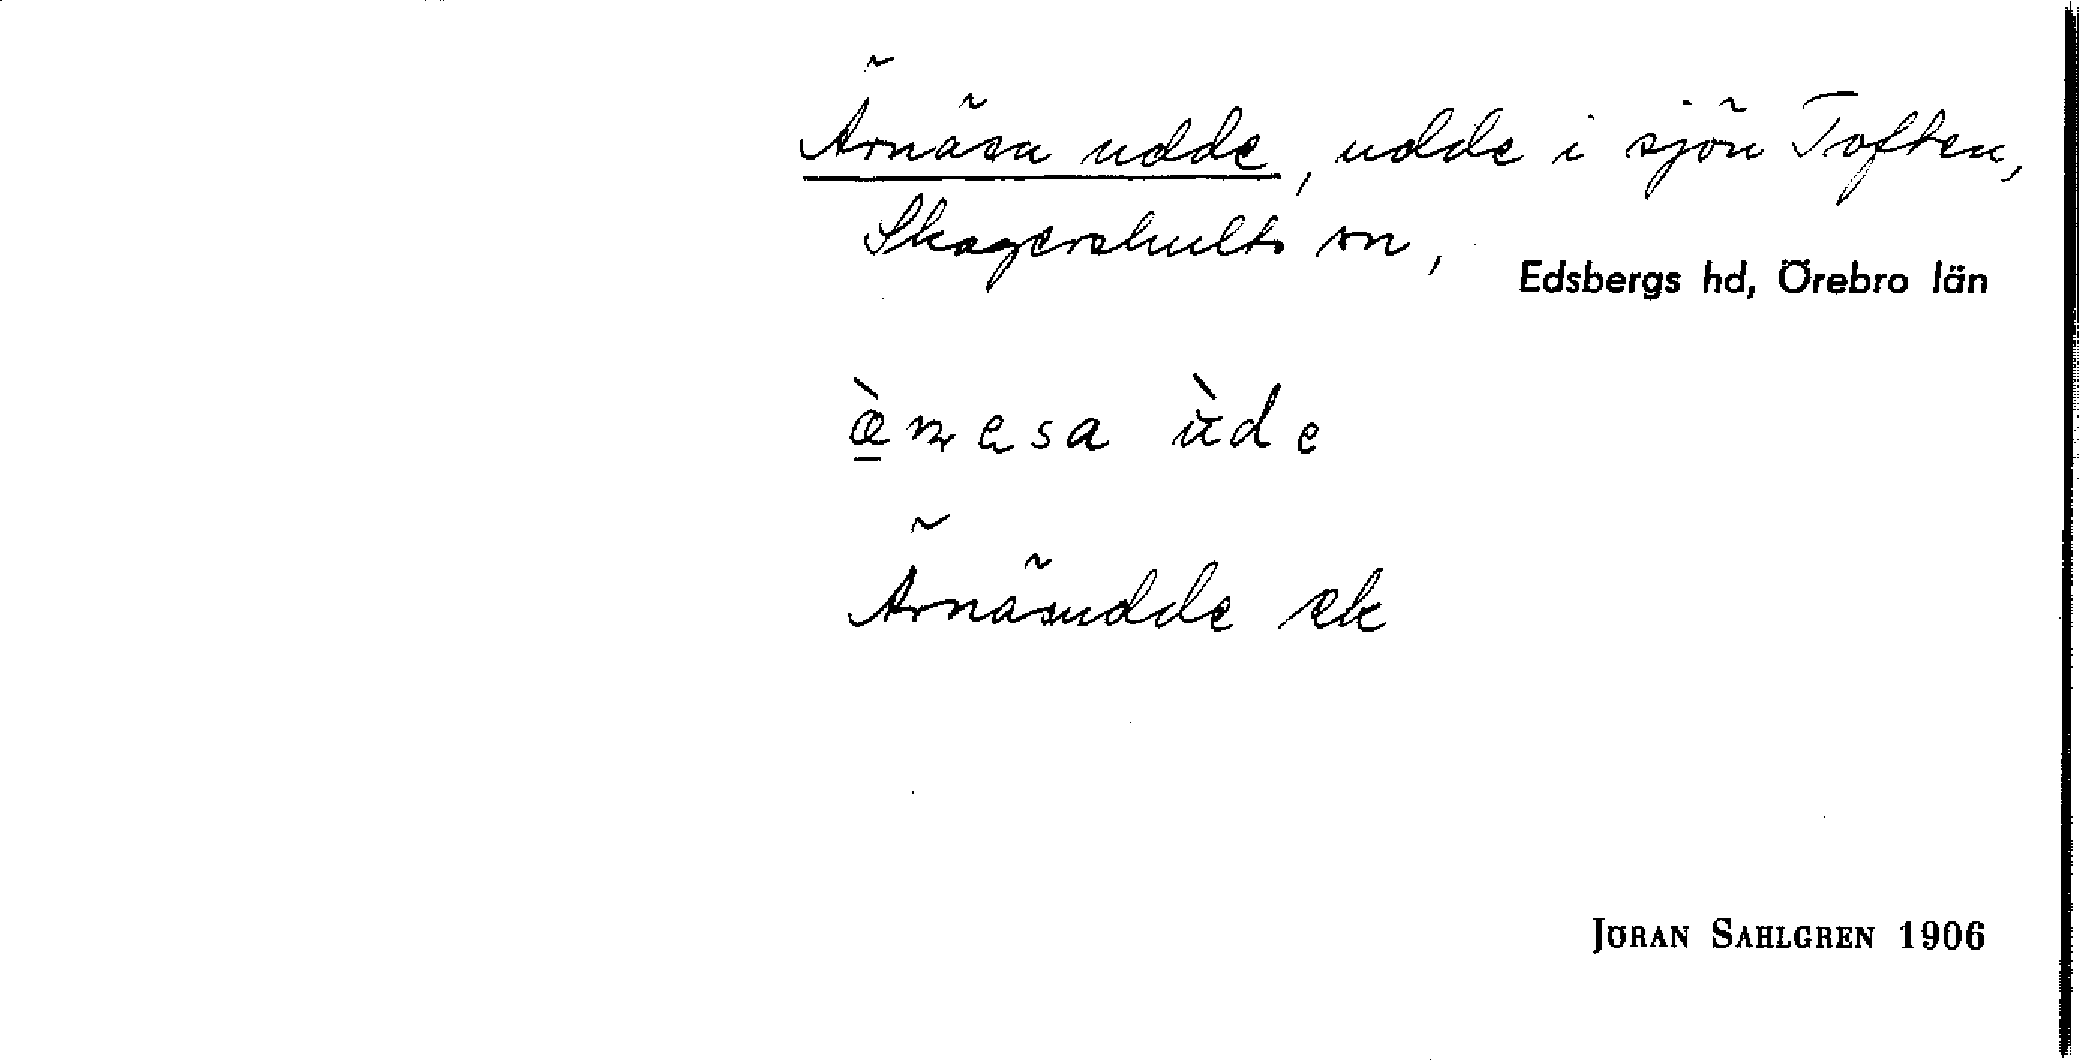 Ärnäsa udde, udde i sjön Toften,
Skagershults sn,
Edsbergs hd, Örebro län
æ̲̀ɳesa ùde
Ärnäsudde ek
JÖRAN SAHLGREN 1906